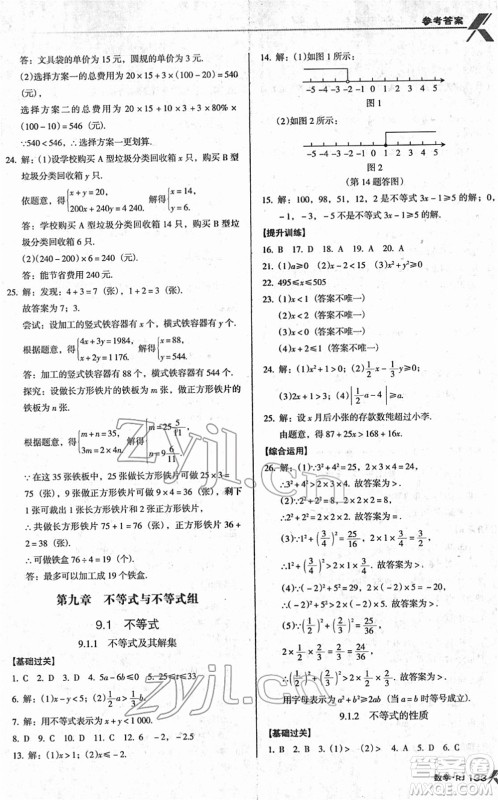 参考答案
答：文具袋的单价为 15 元，圆规的单价为 3 元.
(2)选择方案一的总费用为 20×15+3×(100-20)=540(元).
选择方案二的总费用为 20×15+10×3+3×80%×(100-10)=546(元).
∵540<546，∴选择方案一更划算.
24. 解：(1)设学校购买 A 型垃圾分类回收箱 x 只，购买 B 型垃圾分类回收箱 y 只.
依题意，得{x+y=20, 200x+240y=4 240. 解得{x=14, y=6.
答：学校购买 A 型垃圾分类回收箱 14 只，购买 B 型垃圾分类回收箱 6 只.
(2)(240-200)×6=240(元).
答：能节省费用 240 元.
25. 解：发现：4+3=7(张)，1+2=3(张).
故答案为 7；3.
尝试：设加工的竖式铁容器有 x 个，横式铁容器有 y 个.
根据题意，得{4x+3y=1784, x+2y=1176. 解得{x=88, y=544.
答：加工的竖式铁容器有 88 个，横式铁容器有 544 个.
探究：设做长方形铁片的铁板为 m 张，做正方形铁片的铁板为 n 张.
根据题意，得{m+n=35, 3m=2×4n. 解得{m=25 5/11, n=9 6/11.
∵在这 35 张铁板中，25 张做长方形铁片可做 25×3=75(张)，9 张做正方形铁片可做 9×4=36(张)，剩下 1 张可裁出 1 张长方形铁片和 2 张正方形铁片，
∴共做长方形铁片 75+1=76(张)，正方形铁片 36+2=38(张).
∴可做铁盒 76÷4=19(个).
答：最多可以加工成 19 个铁盒.
第九章 不等式与不等式组
9.1 不等式
9.1.1 不等式及其解集
【基础过关】
1. C 2. D 3. D 4. 5a-6b≤0 5. 25≤t≤33
6. 解：(1)x-y<5；(2)1/2a>1/3b.
7. 解：用不等式表示为 v≤40.
8. D 9. A 10. C 11. B 12. A
13. 解：(1)x>1；(2)x≤-2.
14. 解：(1)如图 1 所示：
-5 -4 -3 -2 -1 0 1 2 3 4 5
图 1
(2)如图 2 所示：
-5 -4 -3 -2 -1 0 1 2 3 4 5
图 2
(第 14 题答图)
15. 解：100，98，51，12，2 是不等式 3x-1≥5 的解；0，-1，-3，-5 不是不等式 3x-1≥5 的解.
【提升训练】
16. B 17. D 18. A 19. C 20. C
21. (1)a≥0 (2)x-2<15 (3)x²+y²≥0
22. 495≤x≤505
23. (1)x<1(答案不唯一)
(2)x>1(答案不唯一)
(3)x≥0(答案不唯一)
(4)x+2≤1(答案不唯一)
24. 解：(1)x²+1>0；(2)1/2x-5<0；(3)1/2x-y≤2；(4)|1/2a-4|≥0.
25. 解：设 x 月后小张的存款数能超过小李.
由题意，得 87+25x>168+16x.
【综合运用】
26. 解：(1)∵3²+4²=25，2×3×4=24，
∴3²+4²>2×3×4. 故答案为>.
(2)∵2²+2²=8，2×2×2=8，
∴2²+2²=2×2×2. 故答案为=.
(3)∵1²+(3/4)²=25/16，2×1×3/4=24/16，
∴1²+(3/4)²>2×1×3/4. 故答案为>.
用字母表示为 a²+b²≥2ab(a=b 时取等号).
9.1.2 不等式的性质
【基础过关】
1. B 2. B 3. A 4. A 5. D 6. C
数学·RJ 133
zyjl.cn